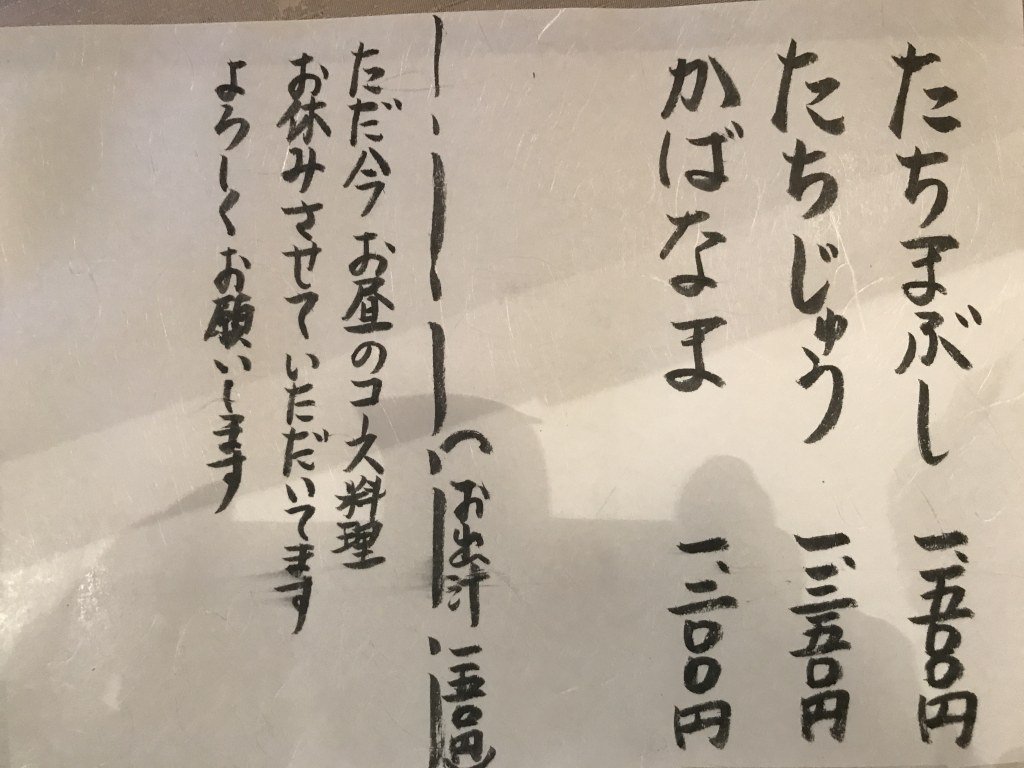 たちまぶし 一、五〇〇円
たちじゅう 一、三五〇円
かばなま 一、二〇〇円
(お出汁 一五〇円)
ただ今 お昼のコース料理
お休みさせていただいてます
よろしくお願いします